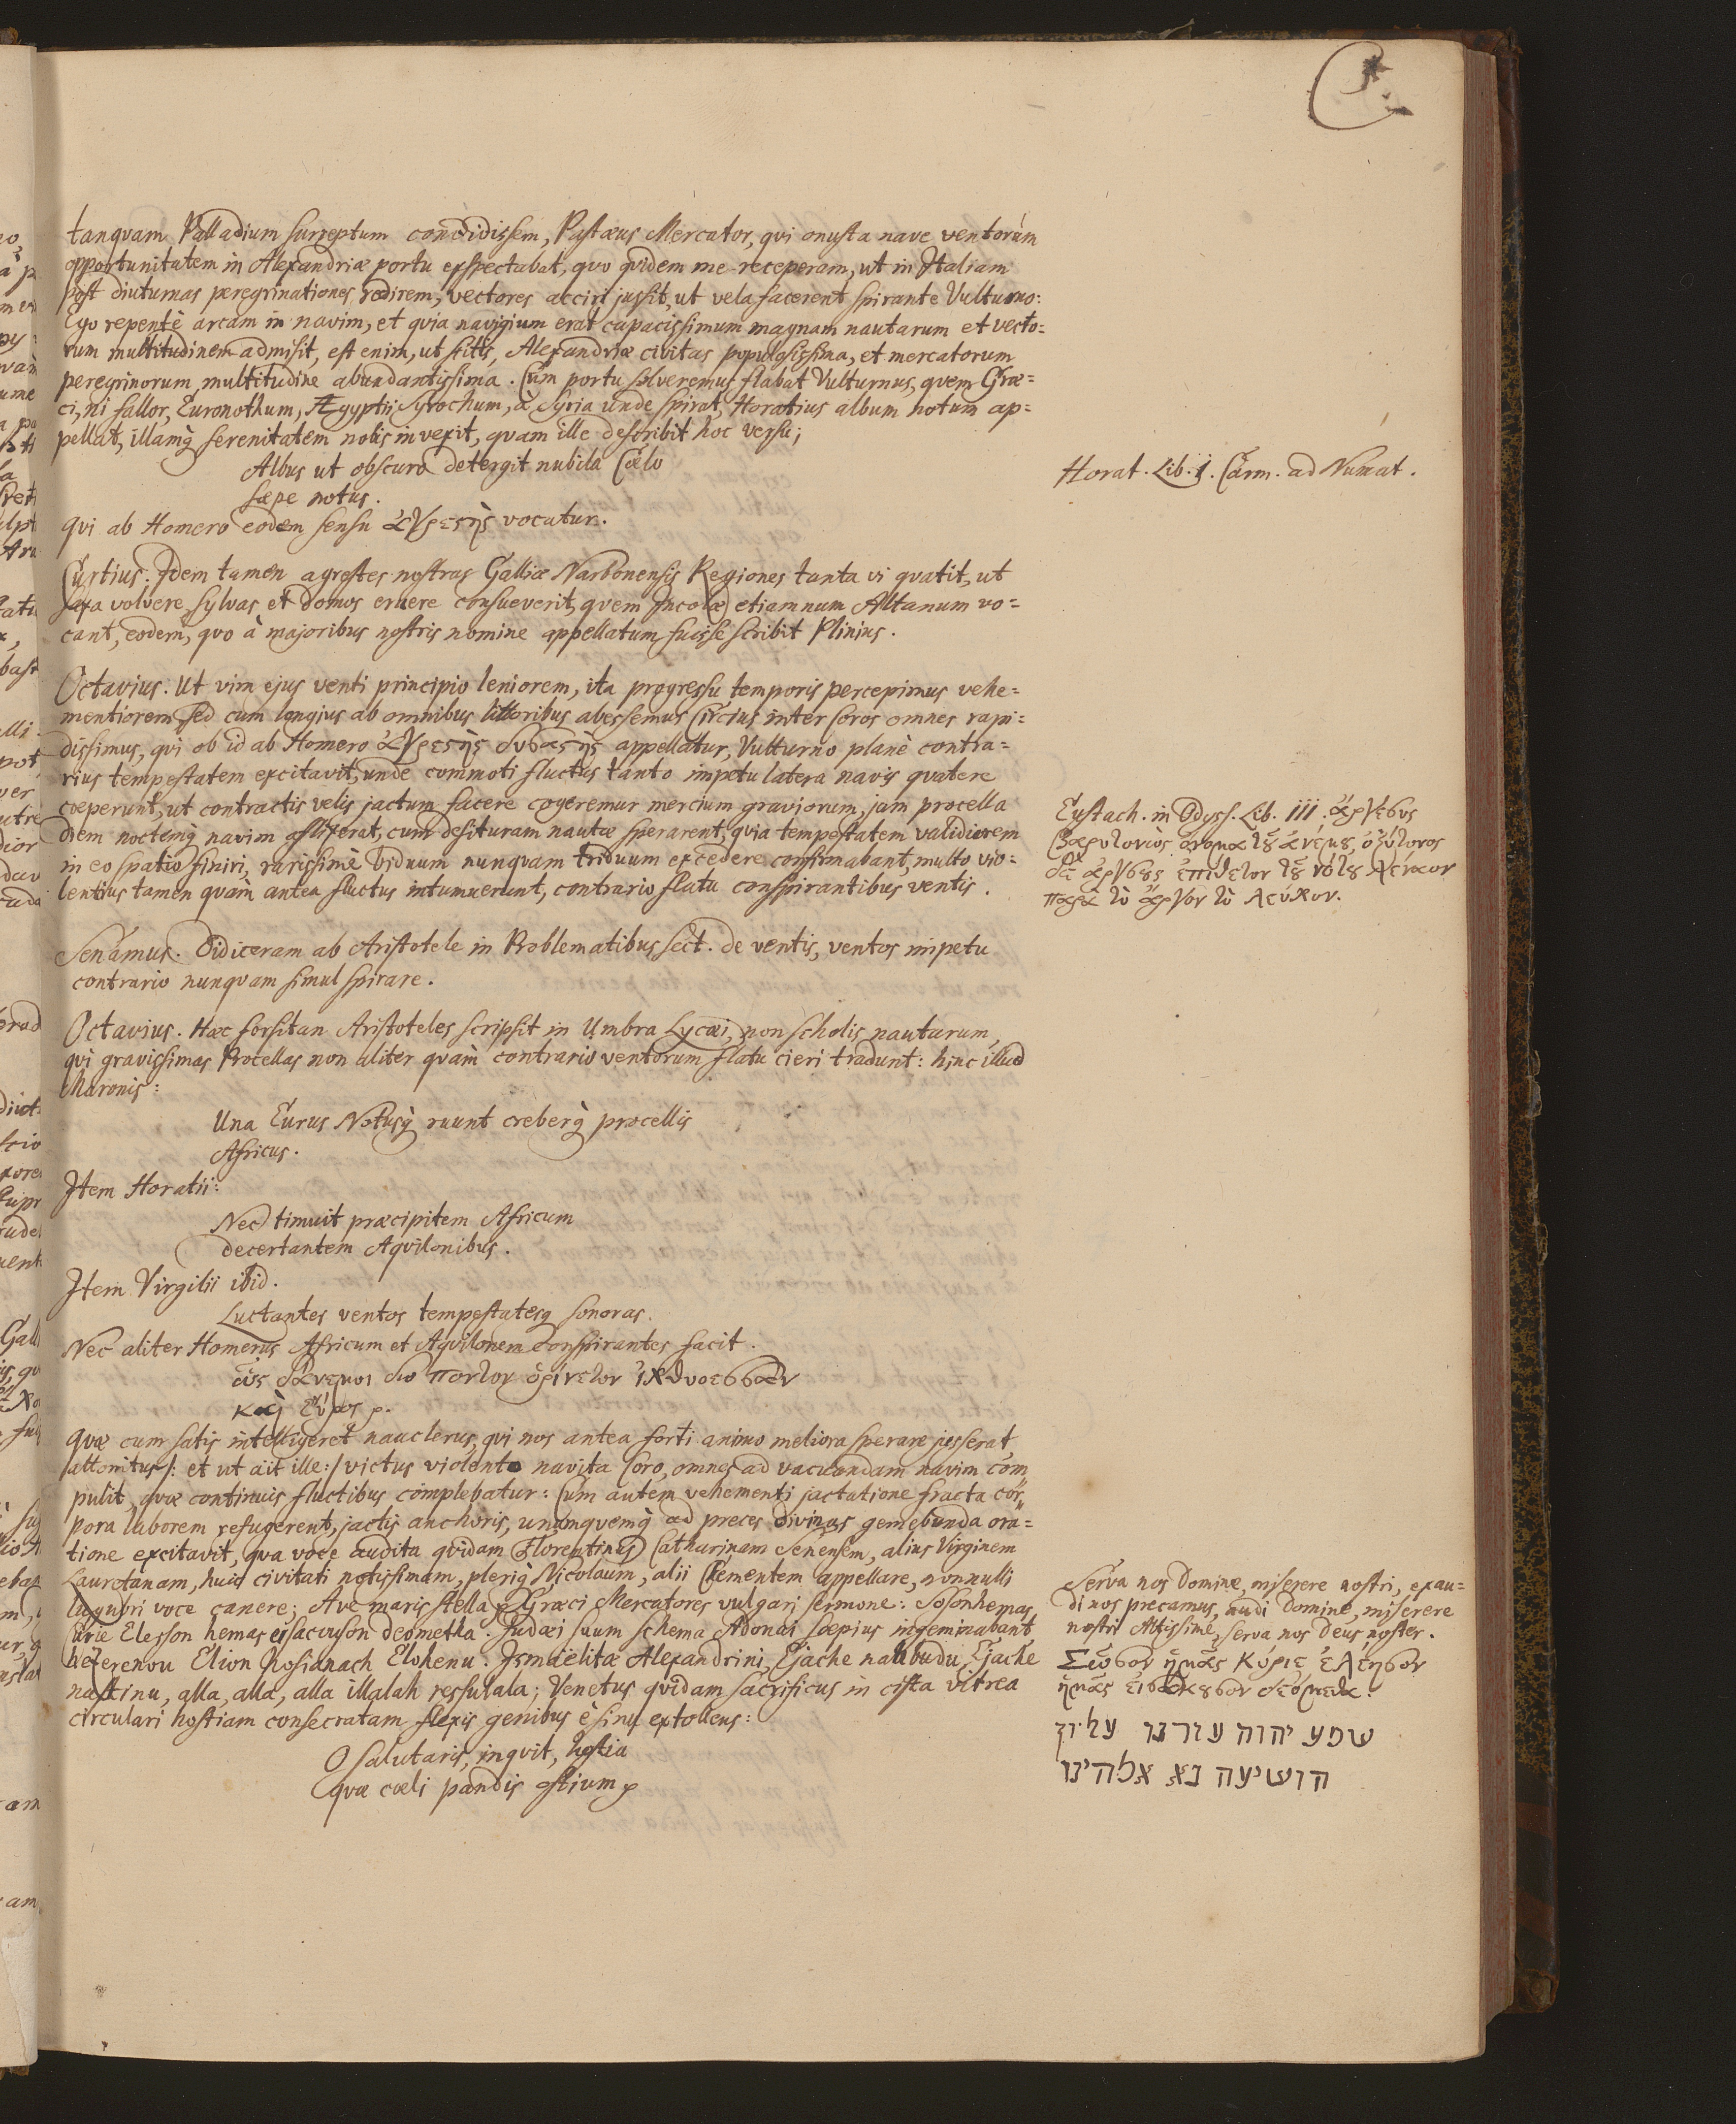 tanqvam Palladium surreptum concidissem, Pastæus Mercator, qvi onusta nave ventorùm
opportunitatem in Alexandriæ portu exspectabat, qvo qvidem me receperam, ut in Italiam
post diuturnas peregrinationes redirem, vectores acciri jussit, ut vela facerent spirante Vulturno:
Ego repentè arcam in navim, et qvia navigium erat capacissimum magnam nautarum et vecto=
rum multitudinem admisit, est enim, ut scitis, Alexandriæ civitas populosissima, et mercatorum
peregrinorum multitudine abundantissima. Cum portu solveremus flabat Vulturnus, qvem Græ=
ci, ni fallor, Euronothum, Ægyptii Syrochum, à Syria unde spirat, Horatius album notum ap=
pellat, illamq́ serenitatem nobis invexit, qvam ille describit hoc versu;
Albus ut obscuro detergit nubila Cœlo
sæpe notus.
qvi ab Homero eodem sensu ἀργεςὴς vocatur.
Curtius: Idem tamen agrestes nostras Galliæ Narbonensis Regiones tanta vi qvatit, ut
saxa volvere, sylvas et domos eruere consueverit, qvem Incolæ etiamnum Altanum vo=
cant, eodem, qvo à majoribus nostris nomine appellatum fuisse scribit Plinius.
Octavius. Ut vim ejus venti principio leniorem, ita progressu temporis percepimus vehe=
mentiorem, sed cum longius ab omnibus littoribus abessemus Circius inter seros omnes rapi=
dissimus, qvi ob id ab Homero ἀργεςὴς δυσαὴς appellatur, Vulturno planè contra=
rius tempestatem excitavit, unde commoti fluctus tanto impetu latera navis qvatere
cœperunt, ut contractis velis jactum facere cogeremur mercium graviorum, jam procella
diem noctemq́ navim afflixerat, cum desituram nautæ sperarent, qvia tempestatem validiorem
in eo spatio finiri, rarissimè biduum nunqvam triduum excedere confirmabant, multo vio=
lentius tamen qvàm antea fluctus intumuerunt, contrario flatu conspirantibus ventis.
Senamus. Didiceram ab Aristotele in Problematibus sect. de ventis, ventos impetu
contrario nunqvam simul spirare.
Octavius. Hæc forsitan Aristoteles scripsit in Umbra Lycæi, non scholis nautarum,
qvi gravissimas Procellas non aliter qvàm contrario ventorum flatu cieri tradunt: hinc illud
Maronis:
Una Eurus Notusq́ ruunt creberq́ procellis
Africus.
Item Horatii:
Nec timuit præcipitem Africum
decertantem Aqvilonibus.
Item Virgilii ibid.
Luctantes ventos tempestatesq́ sonoras.
Nec aliter Homerus Africum et Aqvilonem conspirantes facit.
ὡς δάνεμοι δύο πόντον ὀρίνετον ἰχθυοεσσαν
καὶ εὖρος ꝛ.
qvæ cum satis intelligeret nauclerus, qvi nos antea forti animo meliora sperare jusserat,
attonitus /: et ut ait ille:/ victus violento navita Coro, omnes ad vacuandam navim com
pulit, qvæ continuis fluctibus complebatur: Cum autem vehementi jactatione fracta cor=
pora laborem refugerent, jactis anchoris, unumqvemq́ ad preces divinas gemebunda ora=
tione excitavit, qva voce audita qvidam Florentinus Catharinam Senensem, alius Virginem
Lauretanam, huic civitati notissimam, pleriq́ Nicolaum, alii Clementem appellare, nonnulli
lugubri voce canere; Ave maris stella ꝛ Græci Mercatores vulgari sermone: Sosonhemas
Curie Elesson hemas eisacuuson deometha. Judæi suum schema Adonai sæpius ingeminabant
heterenou Elion hosianach Elohenu. Ismaëlitæ Alexandrini, Ejache nahbudu, Ejache
nastinu, alla, alla, alla illalah ressulala; Venetus qvidam sacrificus in cista vitrea
circulari hostiam consecratam flexis genibus è sinu extollens:
O salutaris, inqvit, hostia
qvæ cœli pandis ostium ꝛ
Horat. Lib. 1. Carm. ad Numat.
Eustach. in Odyss. Lib. III. ἄργεσυς
βαρυτονιὸς ὄνομα τοῦ ἀνέμου, ὀξύτονος
δὲ ἀργεςὴς ἐπίθετον τοῦ νότου
παρὰ τὸ ἄργον τὸ λεύκον.
Serva nos Domine, miserere nostri, exau=
di nos precamus, audi Domine, miserere
nostri Altissime, serva nos Deus noster.
Σῶσον ἡμᾶς Κύριε, ἐλέησον
ἡμᾶς εἰσάκουσον δεόμεθα:
שמע יהוה עזרנו עליון
הושיעה נא אלהינו